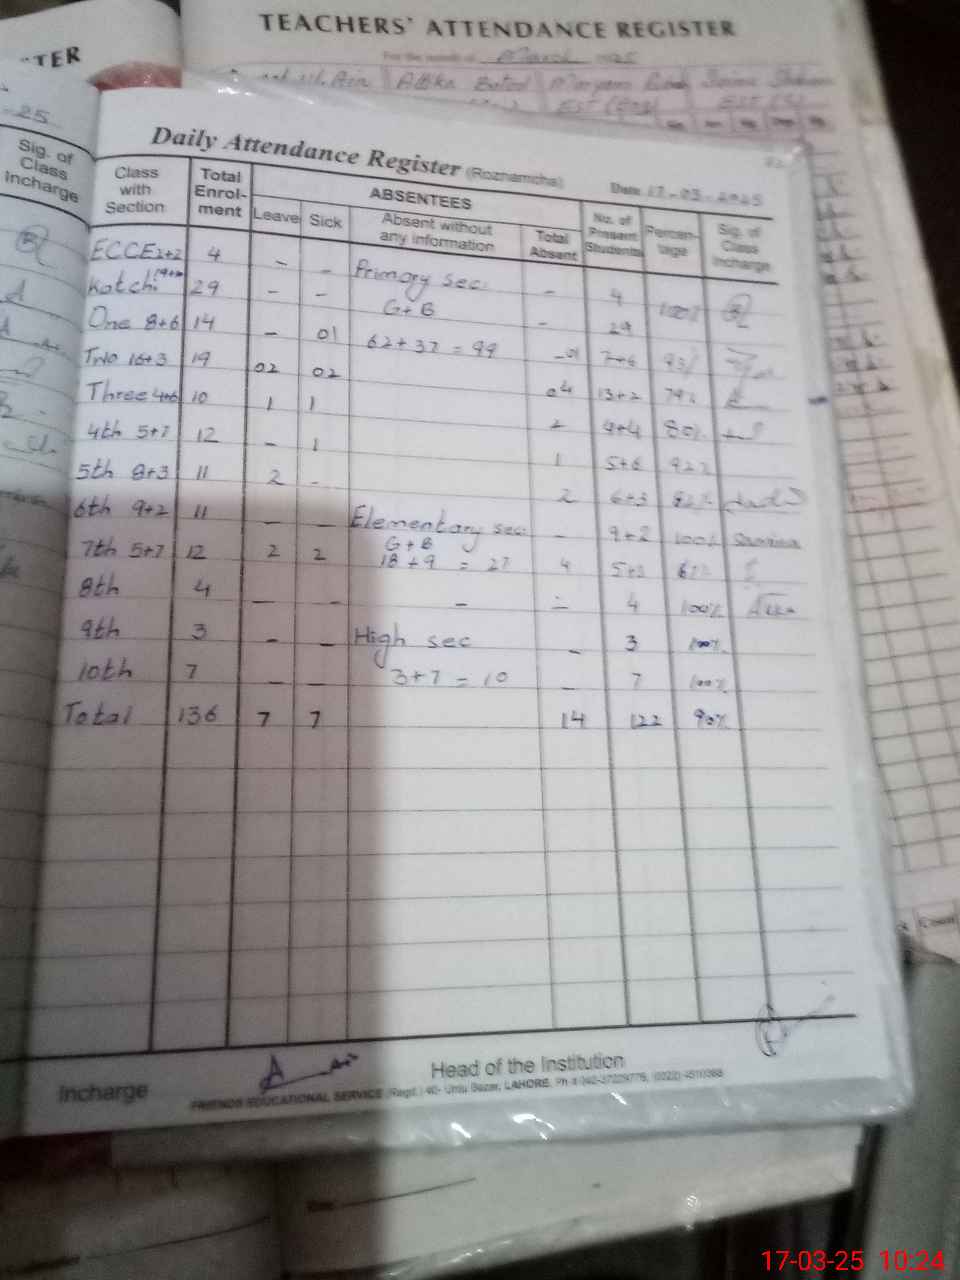 TEACHERS' ATTENDANCE REGISTER
For the month of March
TER
-25
Sig. of
Class
Incharge
Daily Attendance Register (Roznamcha) Date 17-03-2025
Class with Section Total Enrol-ment ABSENTEES No. of Present Students Percen-tage Sig. of Class Incharge
Leave Sick Absent without any information Total Absent
ECCE 2+2 4 - - Primary sec. - 4 100%
Katchi 29 - - G+B - 29
One 8+6 14 - 01 62+37 = 99 01 7+6 93%
Two 16+3 19 02 02 04 13+2 79%
Three 4+6 10 1 1 2 4+4 80%
4th 5+7 12 - 1 1 5+6 92%
5th 8+3 11 2 - 2 6+3 82%
6th 9+2 11 - - Elementary sec. - 9+2 100%
7th 5+7 12 2 2 G+B 18+9 = 27 4 67%
8th 4 - - - - 4 100%
9th 3 - - High sec - 3 100%
10th 7 - - 3+7 = 10 - 7 100%
Total 136 7 7 14 122 90%
Incharge Head of the Institution
FRIENDS EDUCATIONAL SERVICE (Regd.) 40- Urdu Bazar, LAHORE.
17-03-25 10:24